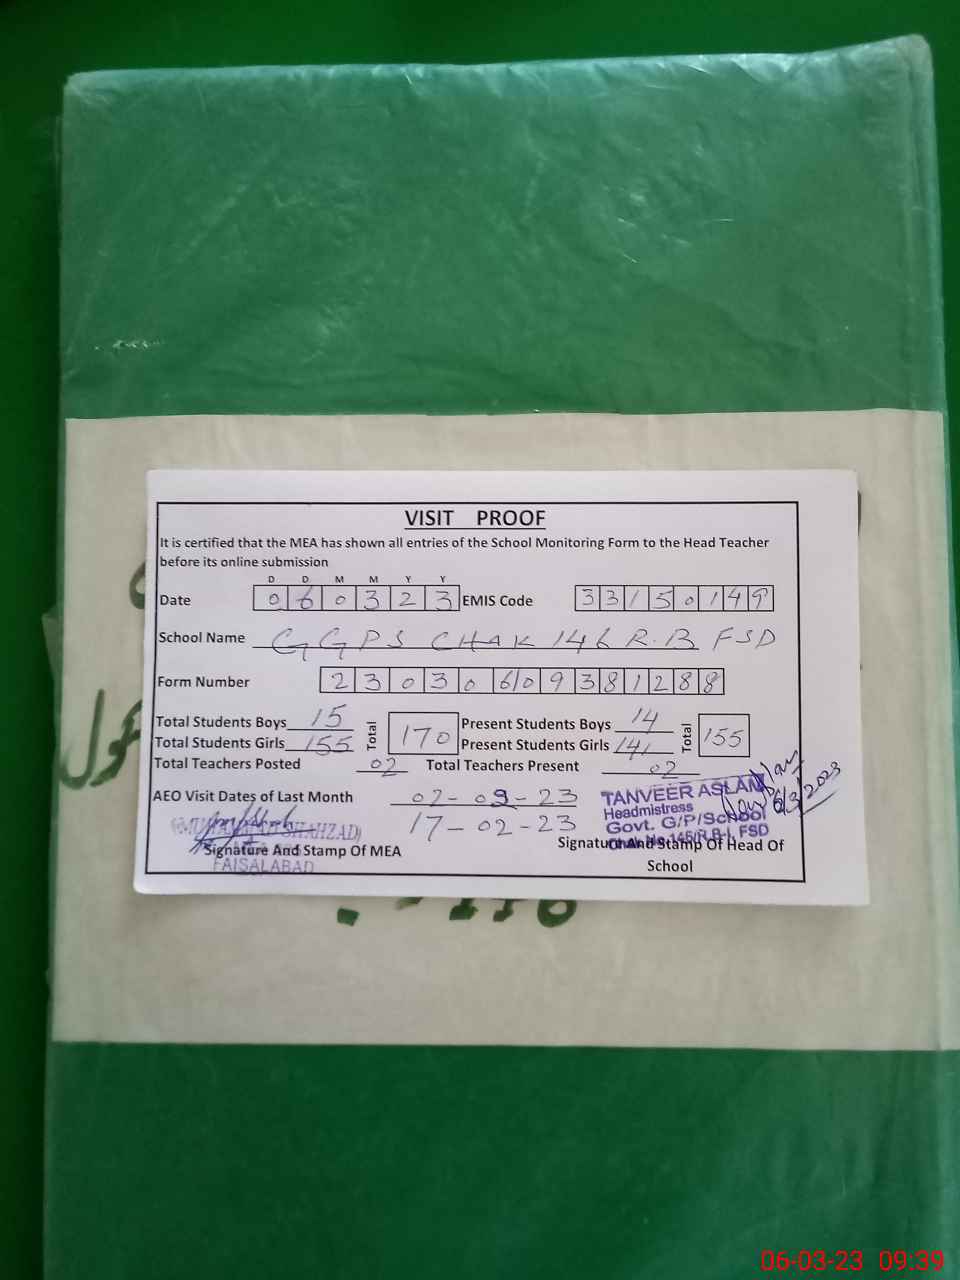 VISIT PROOF
It is certified that the MEA has shown all entries of the School Monitoring Form to the Head Teacher
before its online submission
D D M M Y Y
Date 0 6 0 3 2 3 EMIS Code 3 3 1 5 0 1 4 9
School Name GGPS CHAK 146 R.B FSD
Form Number 2 3 0 3 0 6 0 9 3 8 1 2 8 8
Total Students Boys 15 Total 170 Present Students Boys 14 Total 155
Total Students Girls 155 Present Students Girls 141
Total Teachers Posted 02 Total Teachers Present 02
AEO Visit Dates of Last Month 02-02-23
17-02-23
TANVEER ASLAM
Headmistress
Govt. G/P/School
Chak No.146/R.B-I, FSD
6/3/2023
SHAHZAD)
FAISALABAD
Signature And Stamp Of MEA
Signature And Stamp Of Head Of
School
06-03-23 09:39